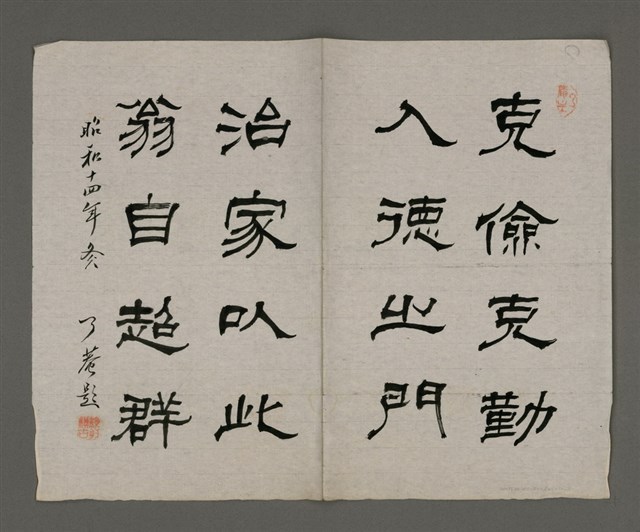 克儉克勤
入德之門
治家以此
翁自超群
昭和十四年冬 了菴題